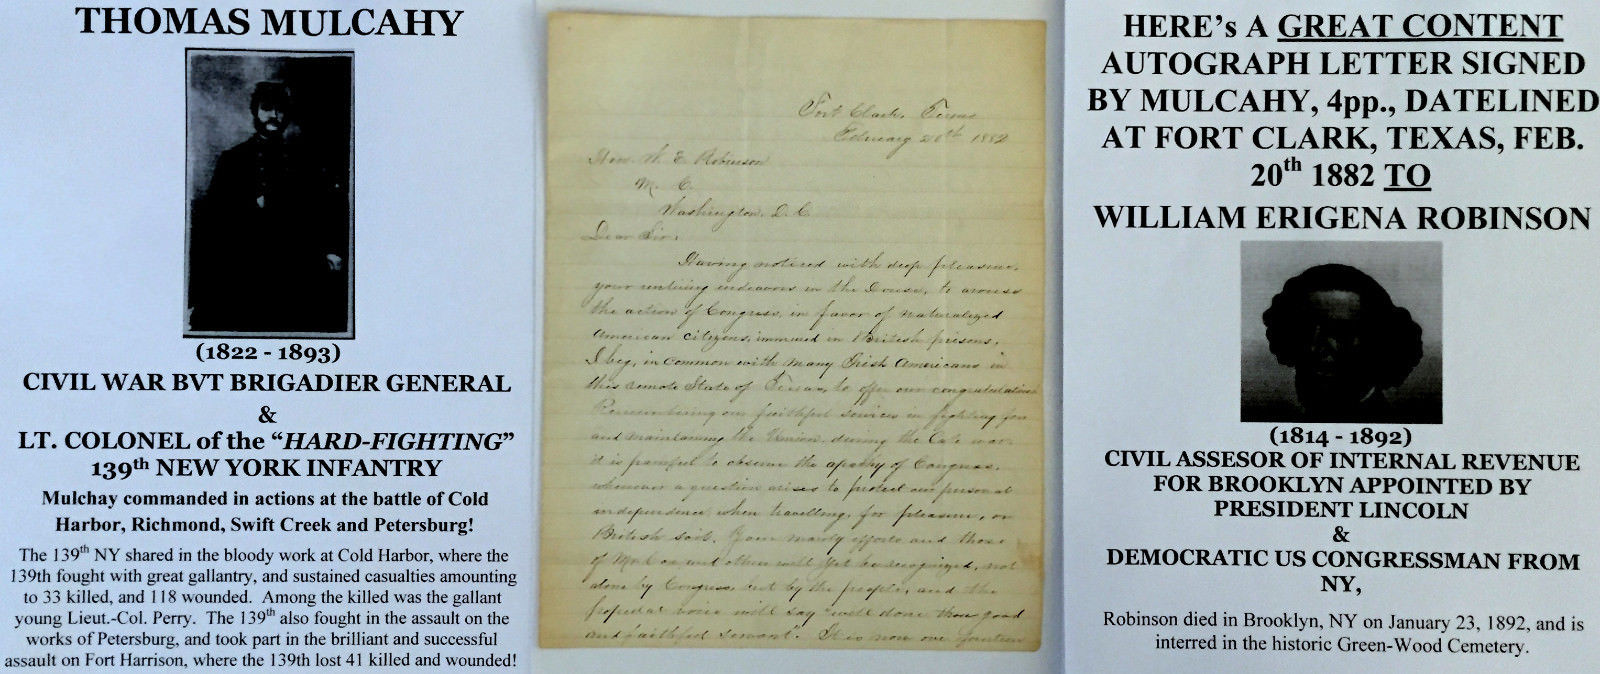 THOMAS MULCAHY
(1822 - 1893)
CIVIL WAR BVT BRIGADIER GENERAL
&
LT. COLONEL of the “HARD-FIGHTING”
139th NEW YORK INFANTRY
Mulchay commanded in actions at the battle of Cold
Harbor, Richmond, Swift Creek and Petersburg!
The 139th NY shared in the bloody work at Cold Harbor, where the
139th fought with great gallantry, and sustained casualties amounting
to 33 killed, and 118 wounded. Among the killed was the gallant
young Lieut.-Col. Perry. The 139th also fought in the assault on the
works of Petersburg, and took part in the brilliant and successful
assault on Fort Harrison, where the 139th lost 41 killed and wounded!
Fort Clark, Texas
February 20th 1882
Hon. W. E. Robinson
M. C.
Washington. D. C.
Dear Sir:
Having noticed with deep pleasure,
your untiring endeavors in the House, to arouse
the action of Congress, in favor of naturalized
American citizens, immured in British prisons,
I beg, in common with many Irish Americans in
this remote State of Texas, to offer our congratulations
Remembering our faithful services in fighting for
and maintaining the Union, during the late war
it is painful to observe the apathy of Congress,
whenever a question arises to protect our personal
independence when travelling, for pleasure, on
British soil. Your manly efforts and those
of will yet be recognized, not
alone by Congress, but by the people, and the
popular voice will say "well done thou good
and faithful servant". It is now over
HERE’s A GREAT CONTENT
AUTOGRAPH LETTER SIGNED
BY MULCAHY, 4pp., DATELINED
AT FORT CLARK, TEXAS, FEB.
20th 1882 TO
WILLIAM ERIGENA ROBINSON
(1814 - 1892)
CIVIL ASSESOR OF INTERNAL REVENUE
FOR BROOKLYN APPOINTED BY
PRESIDENT LINCOLN
&
DEMOCRATIC US CONGRESSMAN FROM
NY,
Robinson died in Brooklyn, NY on January 23, 1892, and is
interred in the historic Green-Wood Cemetery.